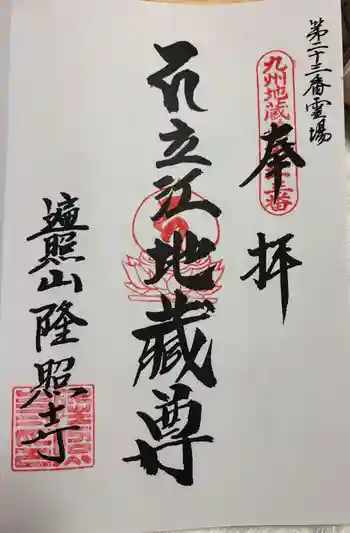 第二十三番霊場
九州地蔵
奉拝
立江地蔵尊
遍照山隆照寺